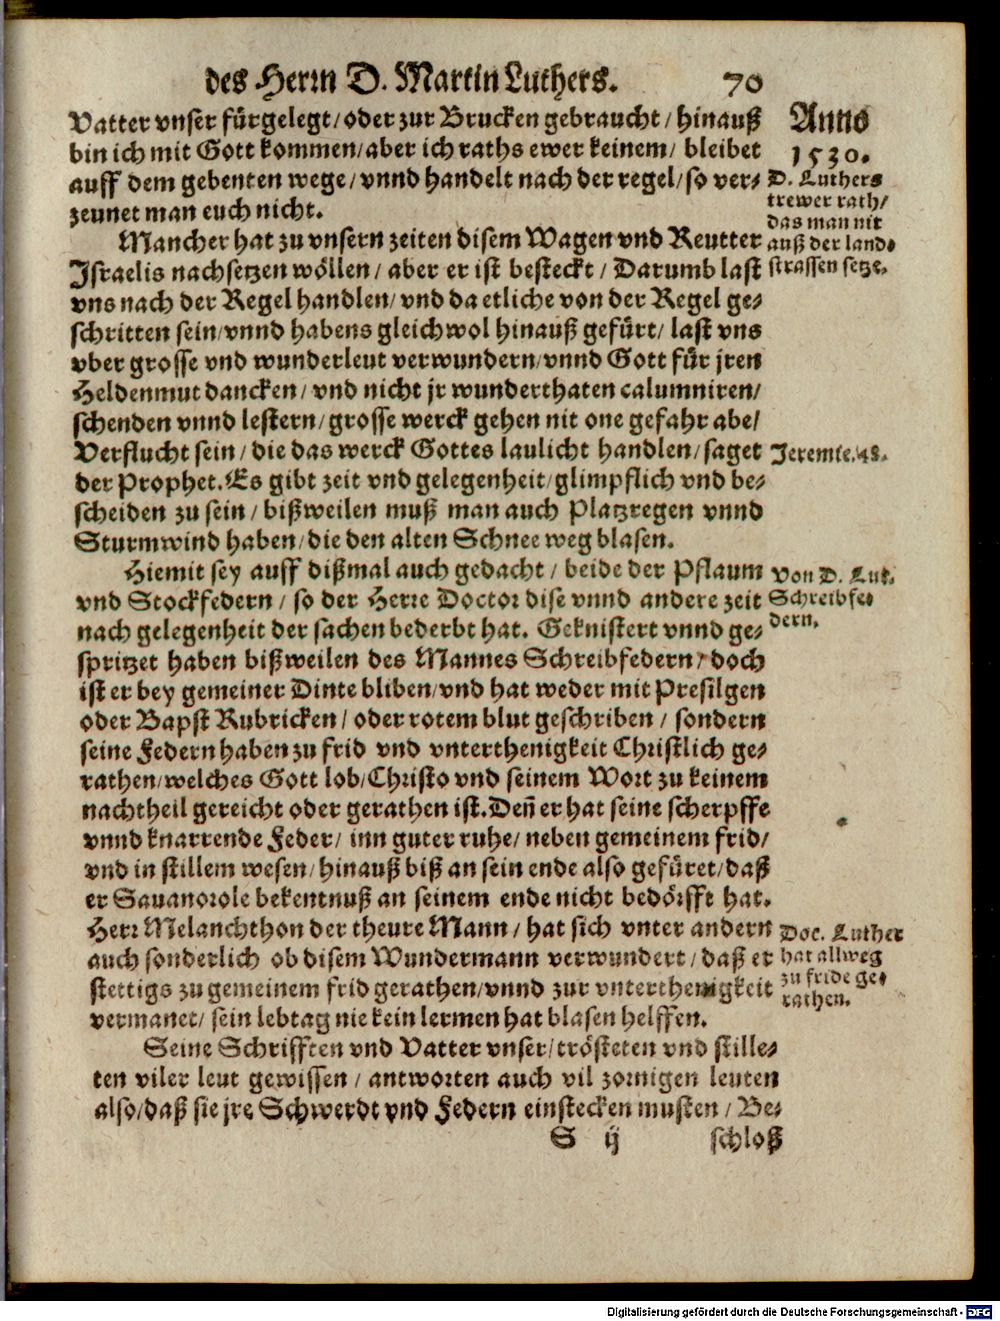 des Herrn D. Martin Luthers. 70
Vatter vnser fürgelegt/ oder zur Brucken gebraucht/ hinauß
bin ich mit Gott kommen/ aber ich raths ewer keinem/ bleibet
auff dem gebenten wege/ vnnd handelt nach der regel/ so ver-
zeunet man euch nicht.
Anno
1530.
D. Luthers
trewer rath/
das man nit
auß der land-
strassen setze.
Mancher hat zu vnsern zeiten disem Wagen vnd Reutter
Israelis nachsetzen wöllen/ aber er ist besteckt/ Darumb last
vns nach der Regel handlen/ vnd da etliche von der Regel ge-
schritten sein/ vnnd habens gleichwol hinauß gefürt/ last vns
vber grosse vnd wunderleut verwundern/ vnnd Gott für jren
Heldenmut dancken/ vnd nicht jr wunderthaten calumniren/
schenden vnnd lestern/ grosse werck gehen nit one gefahr abe/
Verflucht sein/ die das werck Gottes laulicht handlen/ saget
Jeremie. 48.
der Prophet. Es gibt zeit vnd gelegenheit/ glimpflich vnd be-
scheiden zu sein/ bißweilen muß man auch Platzregen vnnd
Sturmwind haben/ die den alten Schnee weg blasen.
Hiemit sey auff dißmal auch gedacht/ beide der Pflaum
vnd Stockfedern/ so der Herre Doctor dise vnnd andere zeit
nach gelegenheit der sachen bederbt hat. Geknistert vnnd ge-
Von D. Lut.
Schreibfe-
dern.
spritzet haben bißweilen des Mannes Schreibfedern/ doch
ist er bey gemeiner Dinte bliben/ vnd hat weder mit Presilgen
oder Bapst Rubricken/ oder rotem blut geschriben/ sondern
seine Federn haben zu frid vnd vnterthenigkeit Christlich ge-
rathen/ welches Gott lob/ Christo vnd seinem Wort zu keinem
nachtheil gereicht oder gerathen ist. Deñ er hat seine scherpffe
vnnd knarrende Feder/ inn guter ruhe/ neben gemeinem frid/
vnd in stillem wesen/ hinauß biß an sein ende also gefüret/ daß
er Sauanorole bekentnuß an seinem ende nicht bedörfft hat.
Herr Melanchthon der theure Mann/ hat sich vnter andern
auch sonderlich ob disem Wundermann verwundert/ daß er
stettigs zu gemeinem frid gerathen/ vnnd zur vnterthenigkeit
vermanet/ sein lebtag nie kein lermen hat blasen helffen.
Doc. Luther
hat allweg
zu fride ge-
rathen.
Seine Schrifften vnd Vatter vnser/ trösteten vnd stille-
ten viler leut gewissen/ antworten auch vil zornigen leuten
also/ daß sie jre Schwerdt vnd Federn einstecken musten/ Be-
S ij schloß
Digitalisierung gefördert durch die Deutsche Forschungsgemeinschaft - DFG